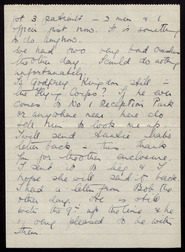 got 3 patients - 2 men & 1
from just now. It is something
to do anyhow.
We had two very bad
the other day. Could do nothing
unfortunately.
Is Godfrey Kingdon still in
the Flying Corps? If he ever
comes to No 1 Reception Park
or anywhere near here do
tell him to look me up.
I will send Sandie's
letter back - then thank
him for the other enclosure.
I sent it to Meg & I
hope she will send it back.
I had a letter from Bob the
other day. He is still
with the 9th up the line & he
is very pleased to be with
them.